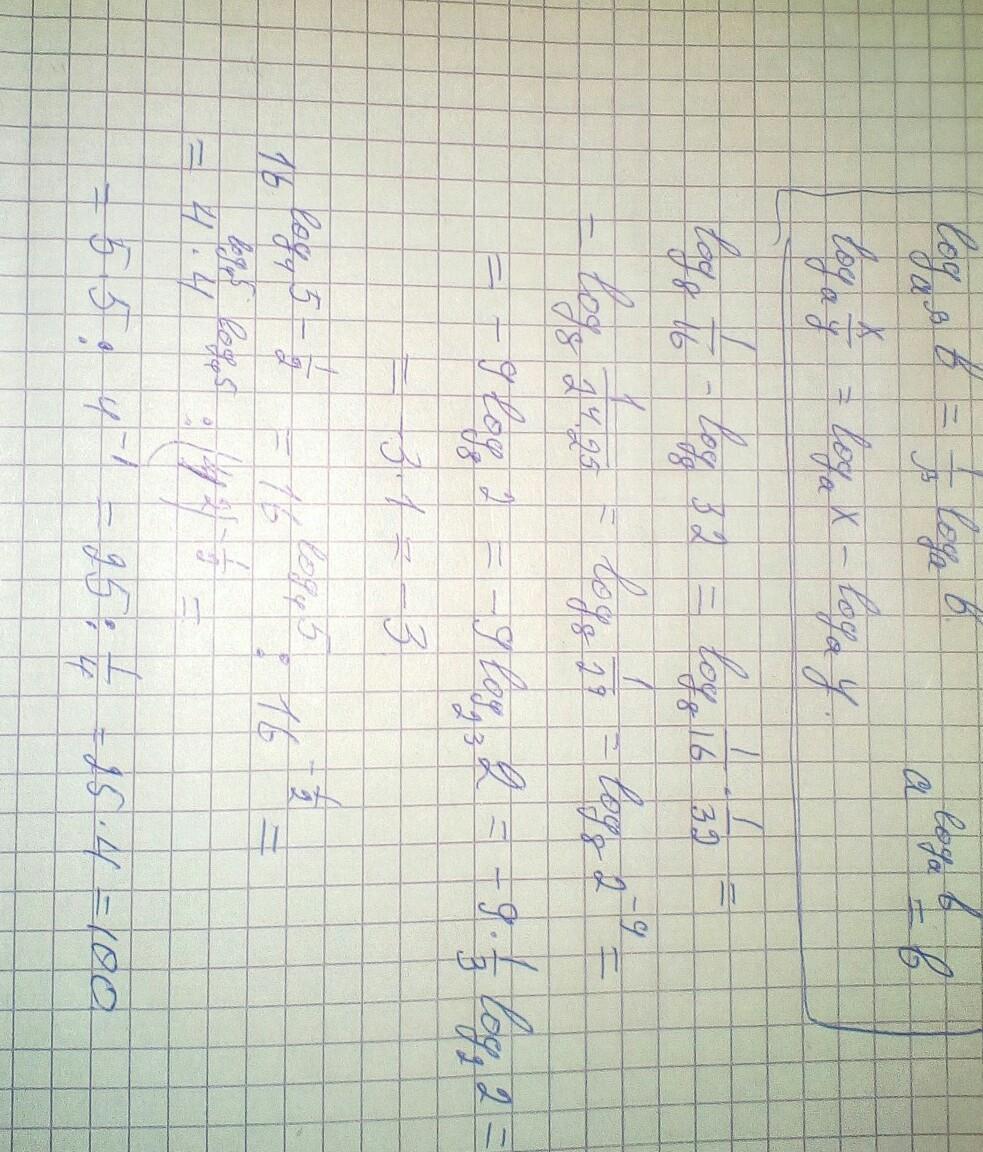 log_{a^s} b = 1/s log_a b    a^{log_a b} = b
log_a x/y = log_a x - log_a y.
log_8 1/16 - log_8 32 = log_8 1/16 · 1/32 =
= log_8 1/(2^4 2^5) = log_8 1/2^9 = log_8 2^{-9} =
= -9 log_8 2 = -9 log_{2^3} 2 = -9 · 1/3 log_2 2 =
= -3 · 1 = -3
16^{log_4 5 - 1/2} = 16^{log_4 5} : 16^{-1/2} =
= 4^{log_4 5} · 4^{log_4 5} : (4^2)^{-1/2} =
= 5 · 5 : 4^{-1} = 25 : 1/4 = 25 · 4 = 100